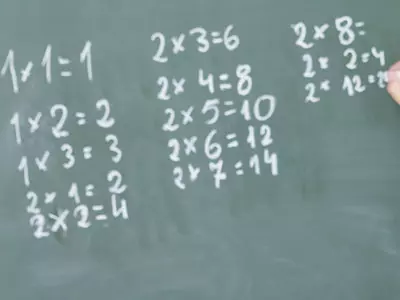 1 × 1 = 1
1 × 2 = 2
1 × 3 = 3
2 × 1 = 2
2 × 2 = 4
2 × 3 = 6
2 × 4 = 8
2 × 5 = 10
2 × 6 = 12
2 × 7 = 14
2 × 8 =
2 × 2 = 4
2 × 12 = 2